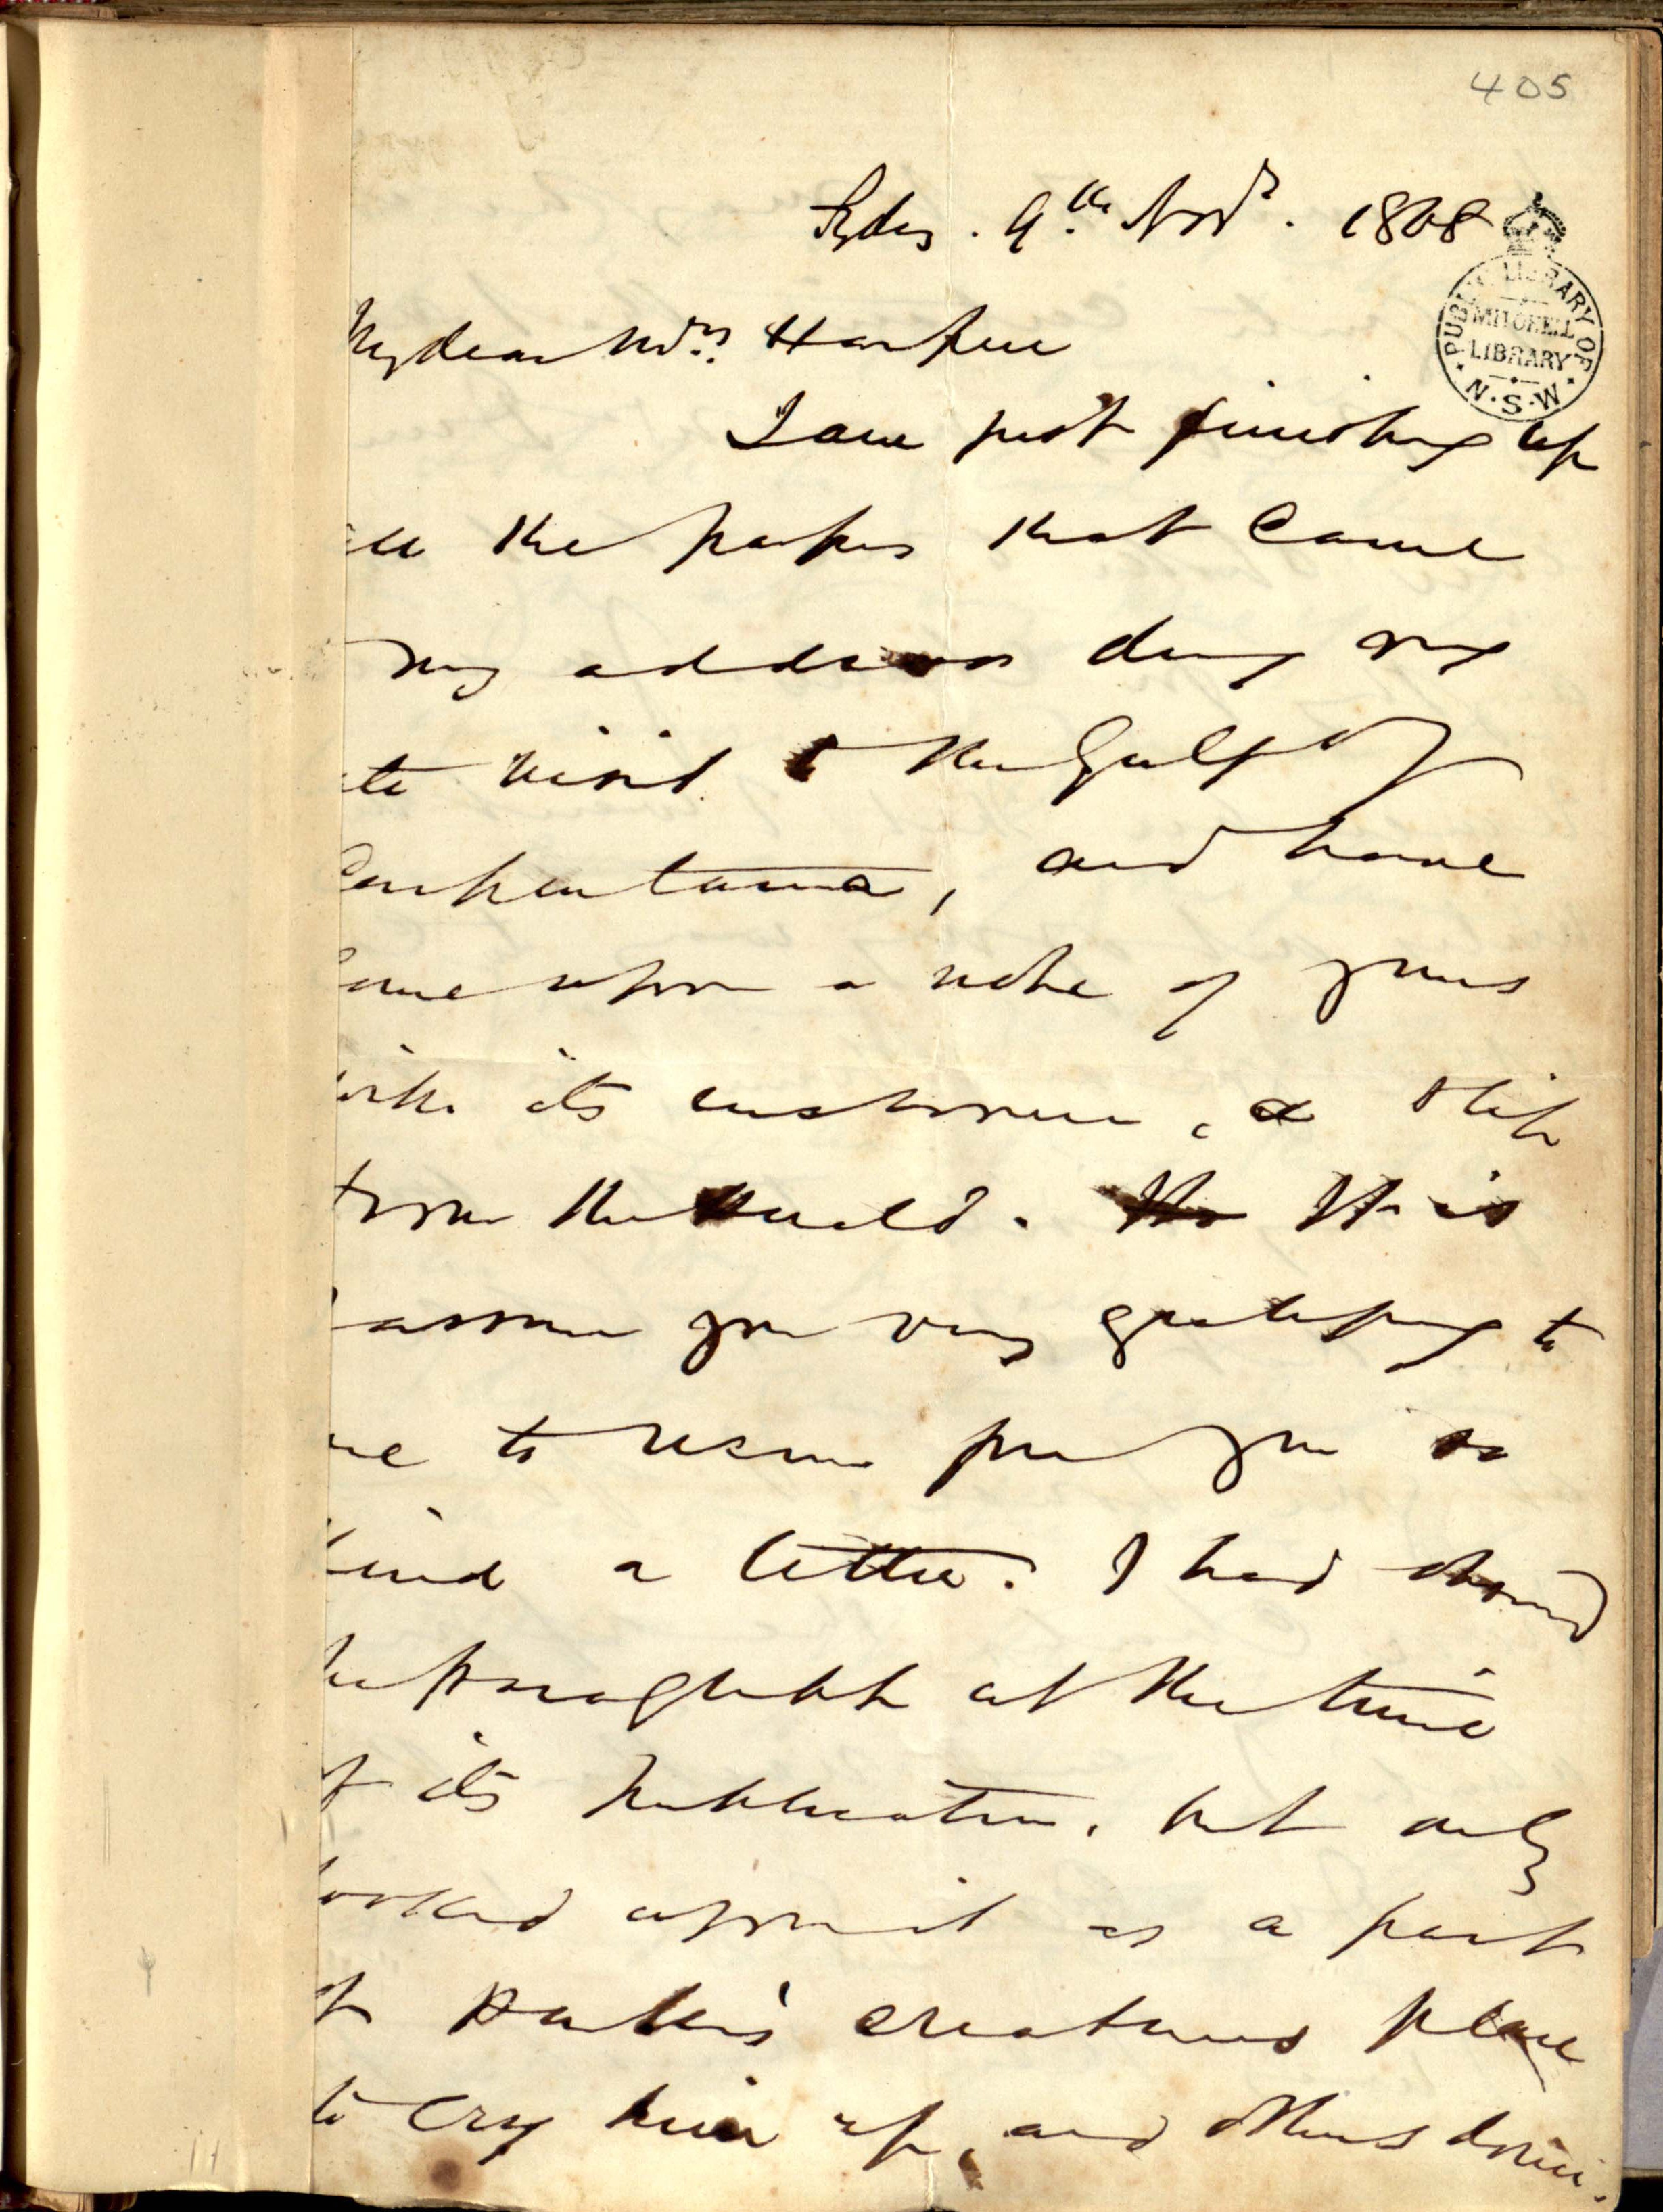 405
Sydney. 9th Novr. 1868
PUBLIC LIBRARY OF
MITCHELL
LIBRARY
N.S.W
My dear Mrs. Harpur
I am just finishing up
all the papers that came
my address during my
late visit to the Gulf of
Carpentaria, and have
come upon a note of yours
with its enclosure, a slip
from the Herald. It is
I assure you very gratifying to
me to receive from you so
kind a letter. I had
the paragraph at the time
of its publication, but only
looked upon it as a part
of Parkes's creatures place
to cry him up, and others down.